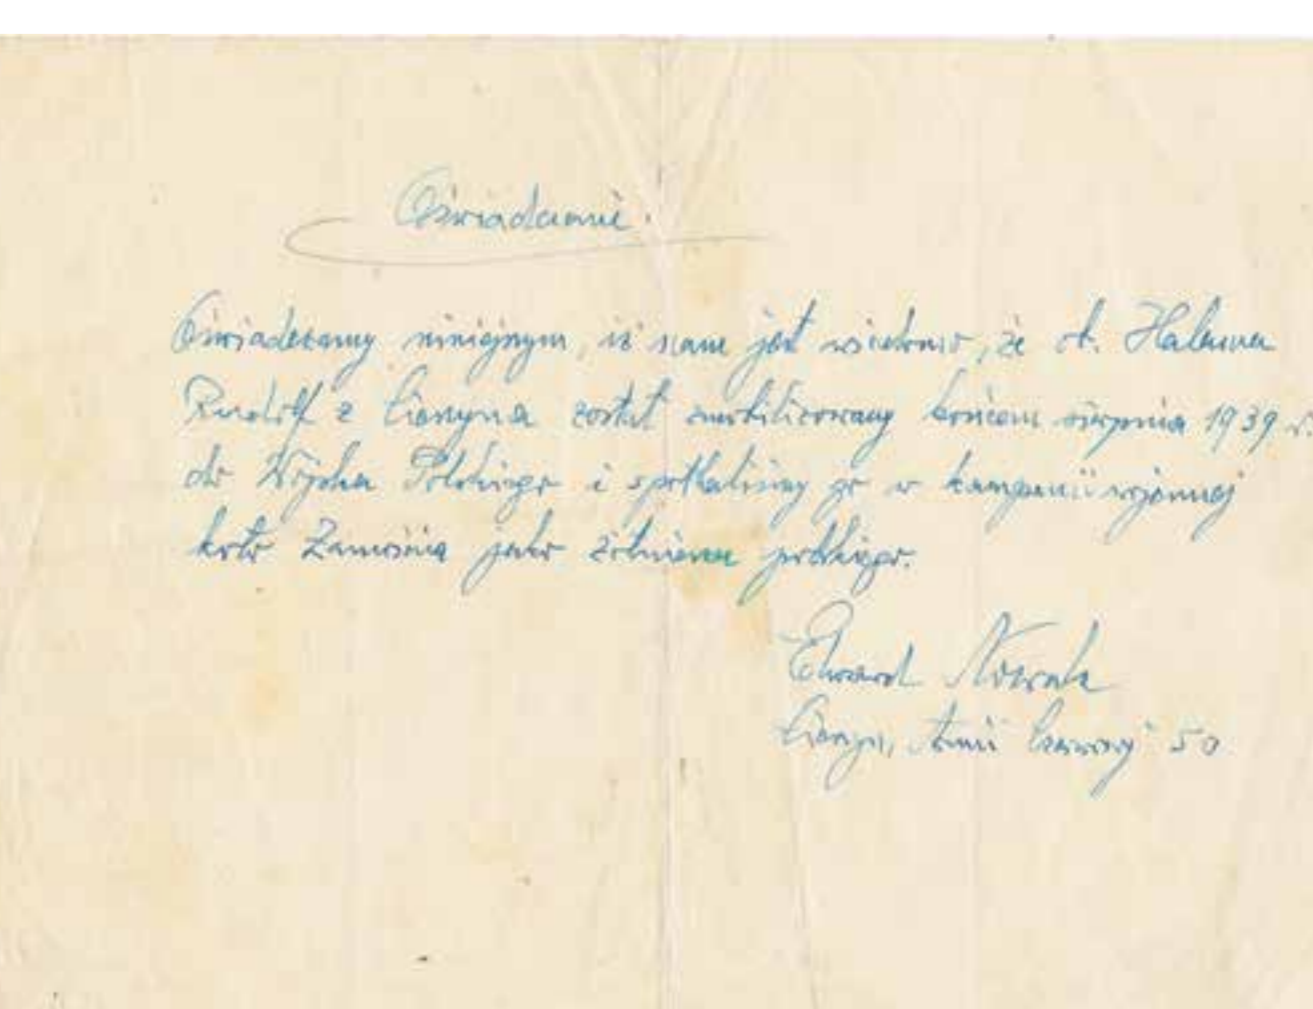 Oświadczenie.
Oświadczamy niniejszym, iż nam jest wiadomo, że ob.
Rudolf z Cieszyna został zmobilizowany końcem sierpnia 1939 r.
do Wojska Polskiego i spotkaliśmy go w kampanii wojennej
koło Zamościa jako żołnierza polskiego.
Edward Nowak
Cieszyn, Armii Czerwonej 50